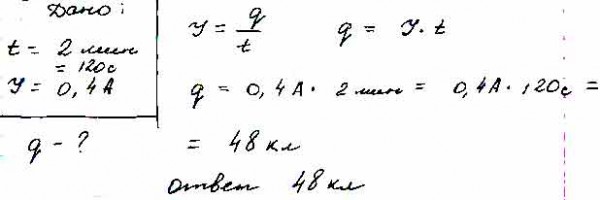 Дано:
t = 2 мин
= 120 с
У = 0,4 А
q - ?
У = q/t q = У · t
q = 0,4 А · 2 мин = 0,4 А · 120 с =
= 48 кл
ответ 48 кл